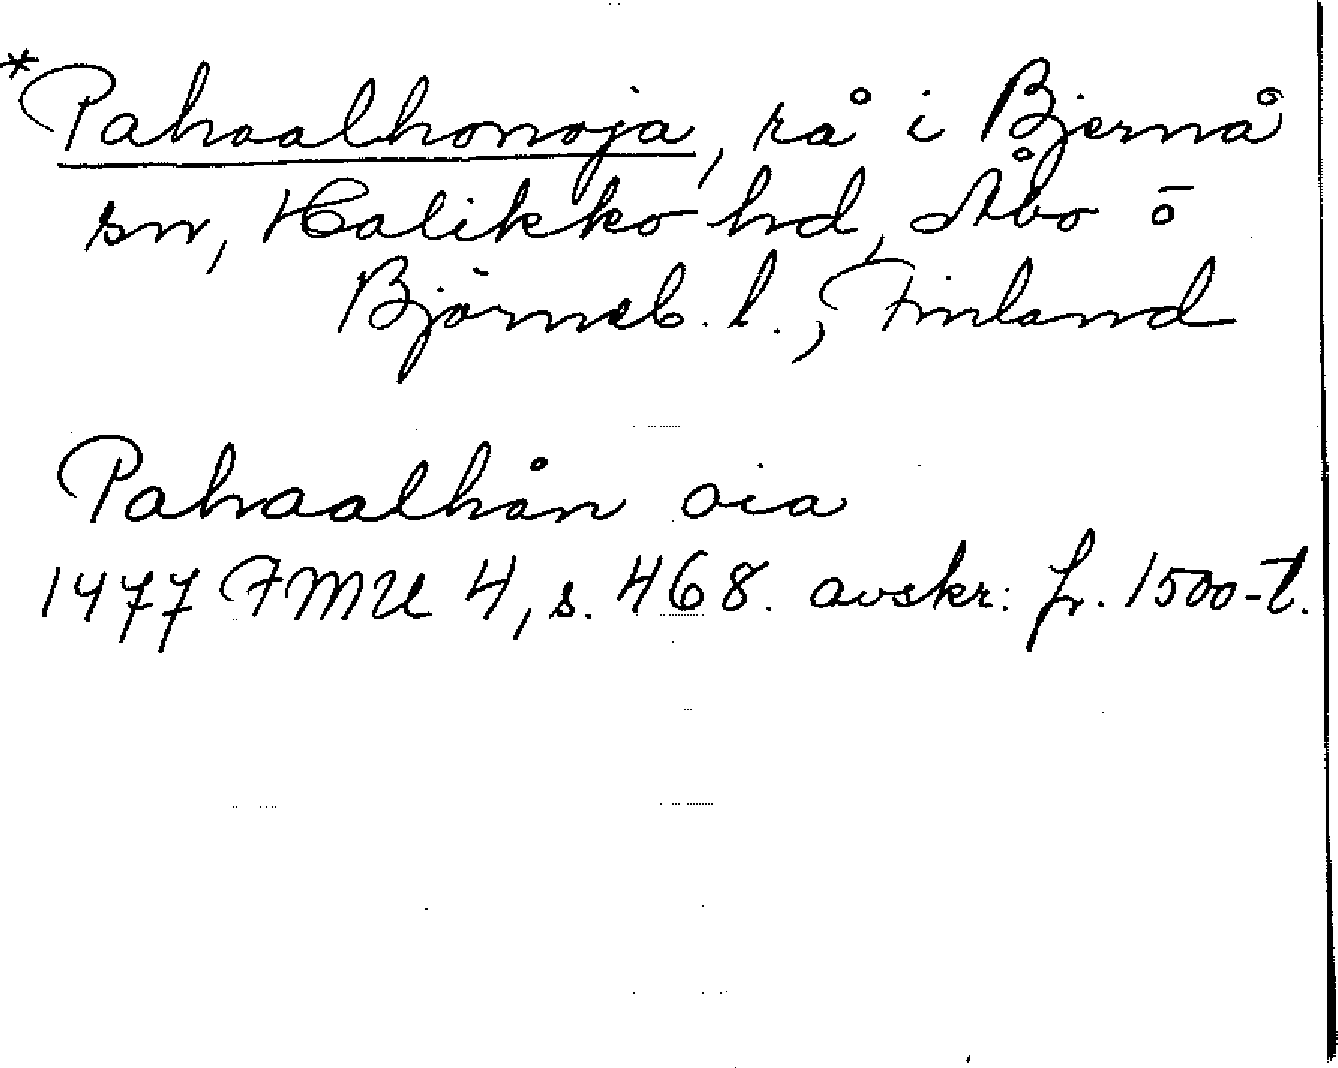 *Pahaalhonoja, rå i Bjernå
sn, Halikko hd, Åbo o
Björneb. l., Finland
Pahaalhån oia
1477 FMU 4, s. 468. avskr. fr. 1500-t.